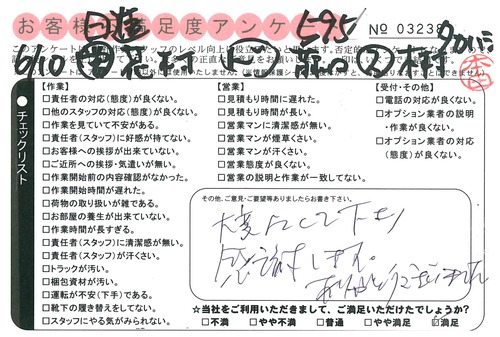 お客様 満足度アンケ
No 03230
6/10
【作業】
□責任者の対応(態度)が良くない。
□他のスタッフの対応(態度)が良くない。
□作業を見ていて安がある。
□責任者(スタッフ)に好感が持てない。
□お客様への挨拶が出来ていない。
□ご近所への挨拶・気遣いが無い。
□作業開始前の内容確認がなかった。
□作業開始時間が遅れた。
□荷物の取り扱いが雑である。
□お部屋の養生が出来ていない。
□作業時間が長すぎる。
□責任者(スタッフ)に清潔感が無い。
□責任者(スタッフ)が汗くさい。
□トラックが汚い。
□梱包資材が汚い。
□運転が不安(下手)である。
□靴下の履き替えをしてない。
□スタッフにやる気がみられない。
【営業】
□見積もり時間に遅れた。
□見積もり時間が長い。
□営業マンに清潔感が無い。
□営業マンが煙草くさい。
□営業マンが汗くさい。
□営業態度が良くない。
□営業の説明と作業が一致してない。
【受付・その他】
□電話の対応が良くない。
□オプション業者の説明
・作業が良くない。
□オプション業者の対応
(態度)が良くない。
チェックリスト
その他、ご意見・ご要望等ありましたらお書き下さい。
大変よくして下さり
感謝します。
ありがとうございました
☆当社をご利用いただきまして、ご満足いただけたでしょうか?
□不満 □やや不満 □普通 □やや満足 ☑満足